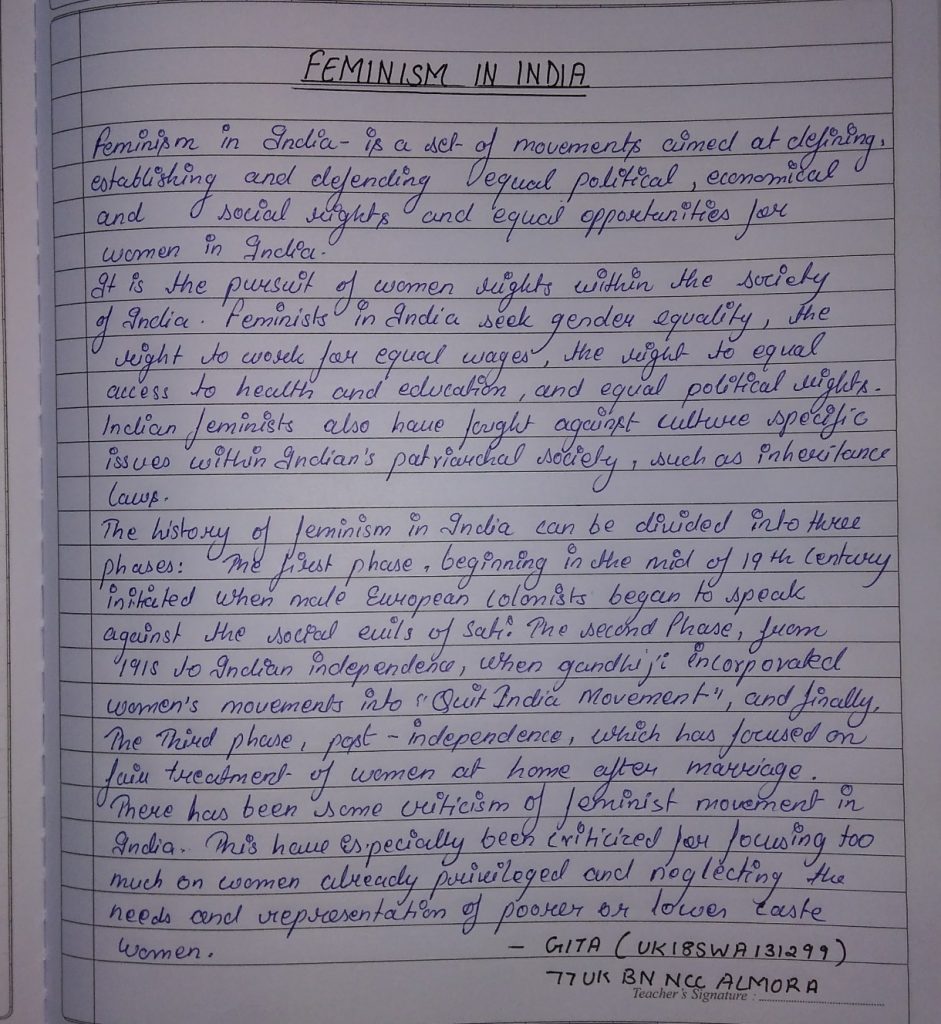 FEMINISM IN INDIA
Feminism in India - is a set of movements aimed at defining,
establishing and defending equal political, economical
and social rights and equal opportunities for
women in India.
It is the pursuit of women rights within the society
of India. Feminists in India seek gender equality, the
right to work for equal wages, the right to equal
access to health and education, and equal political rights.
Indian feminists also have fought against culture specific
issues within Indian's patriarchal society, such as inheritance
laws.
The history of feminism in India can be divided into three
phases: The first phase, beginning in the mid of 19th Century
initiated when male European colonists began to speak
against the social evils of Sati. The second Phase, from
1915 to Indian independence, when gandhiji incorporated
women's movements into "Quit India Movement", and finally,
The Third phase, post-independence, which has focused on
fair treatment of women at home after marriage.
There has been some criticism of feminist movement in
India. This have especially been criticized for focusing too
much on women already privileged and neglecting the
needs and representation of poorer or lower caste
women.
- GITA (UK18SWA131299)
77 UK BN NCC ALMORA
Teacher's Signature :